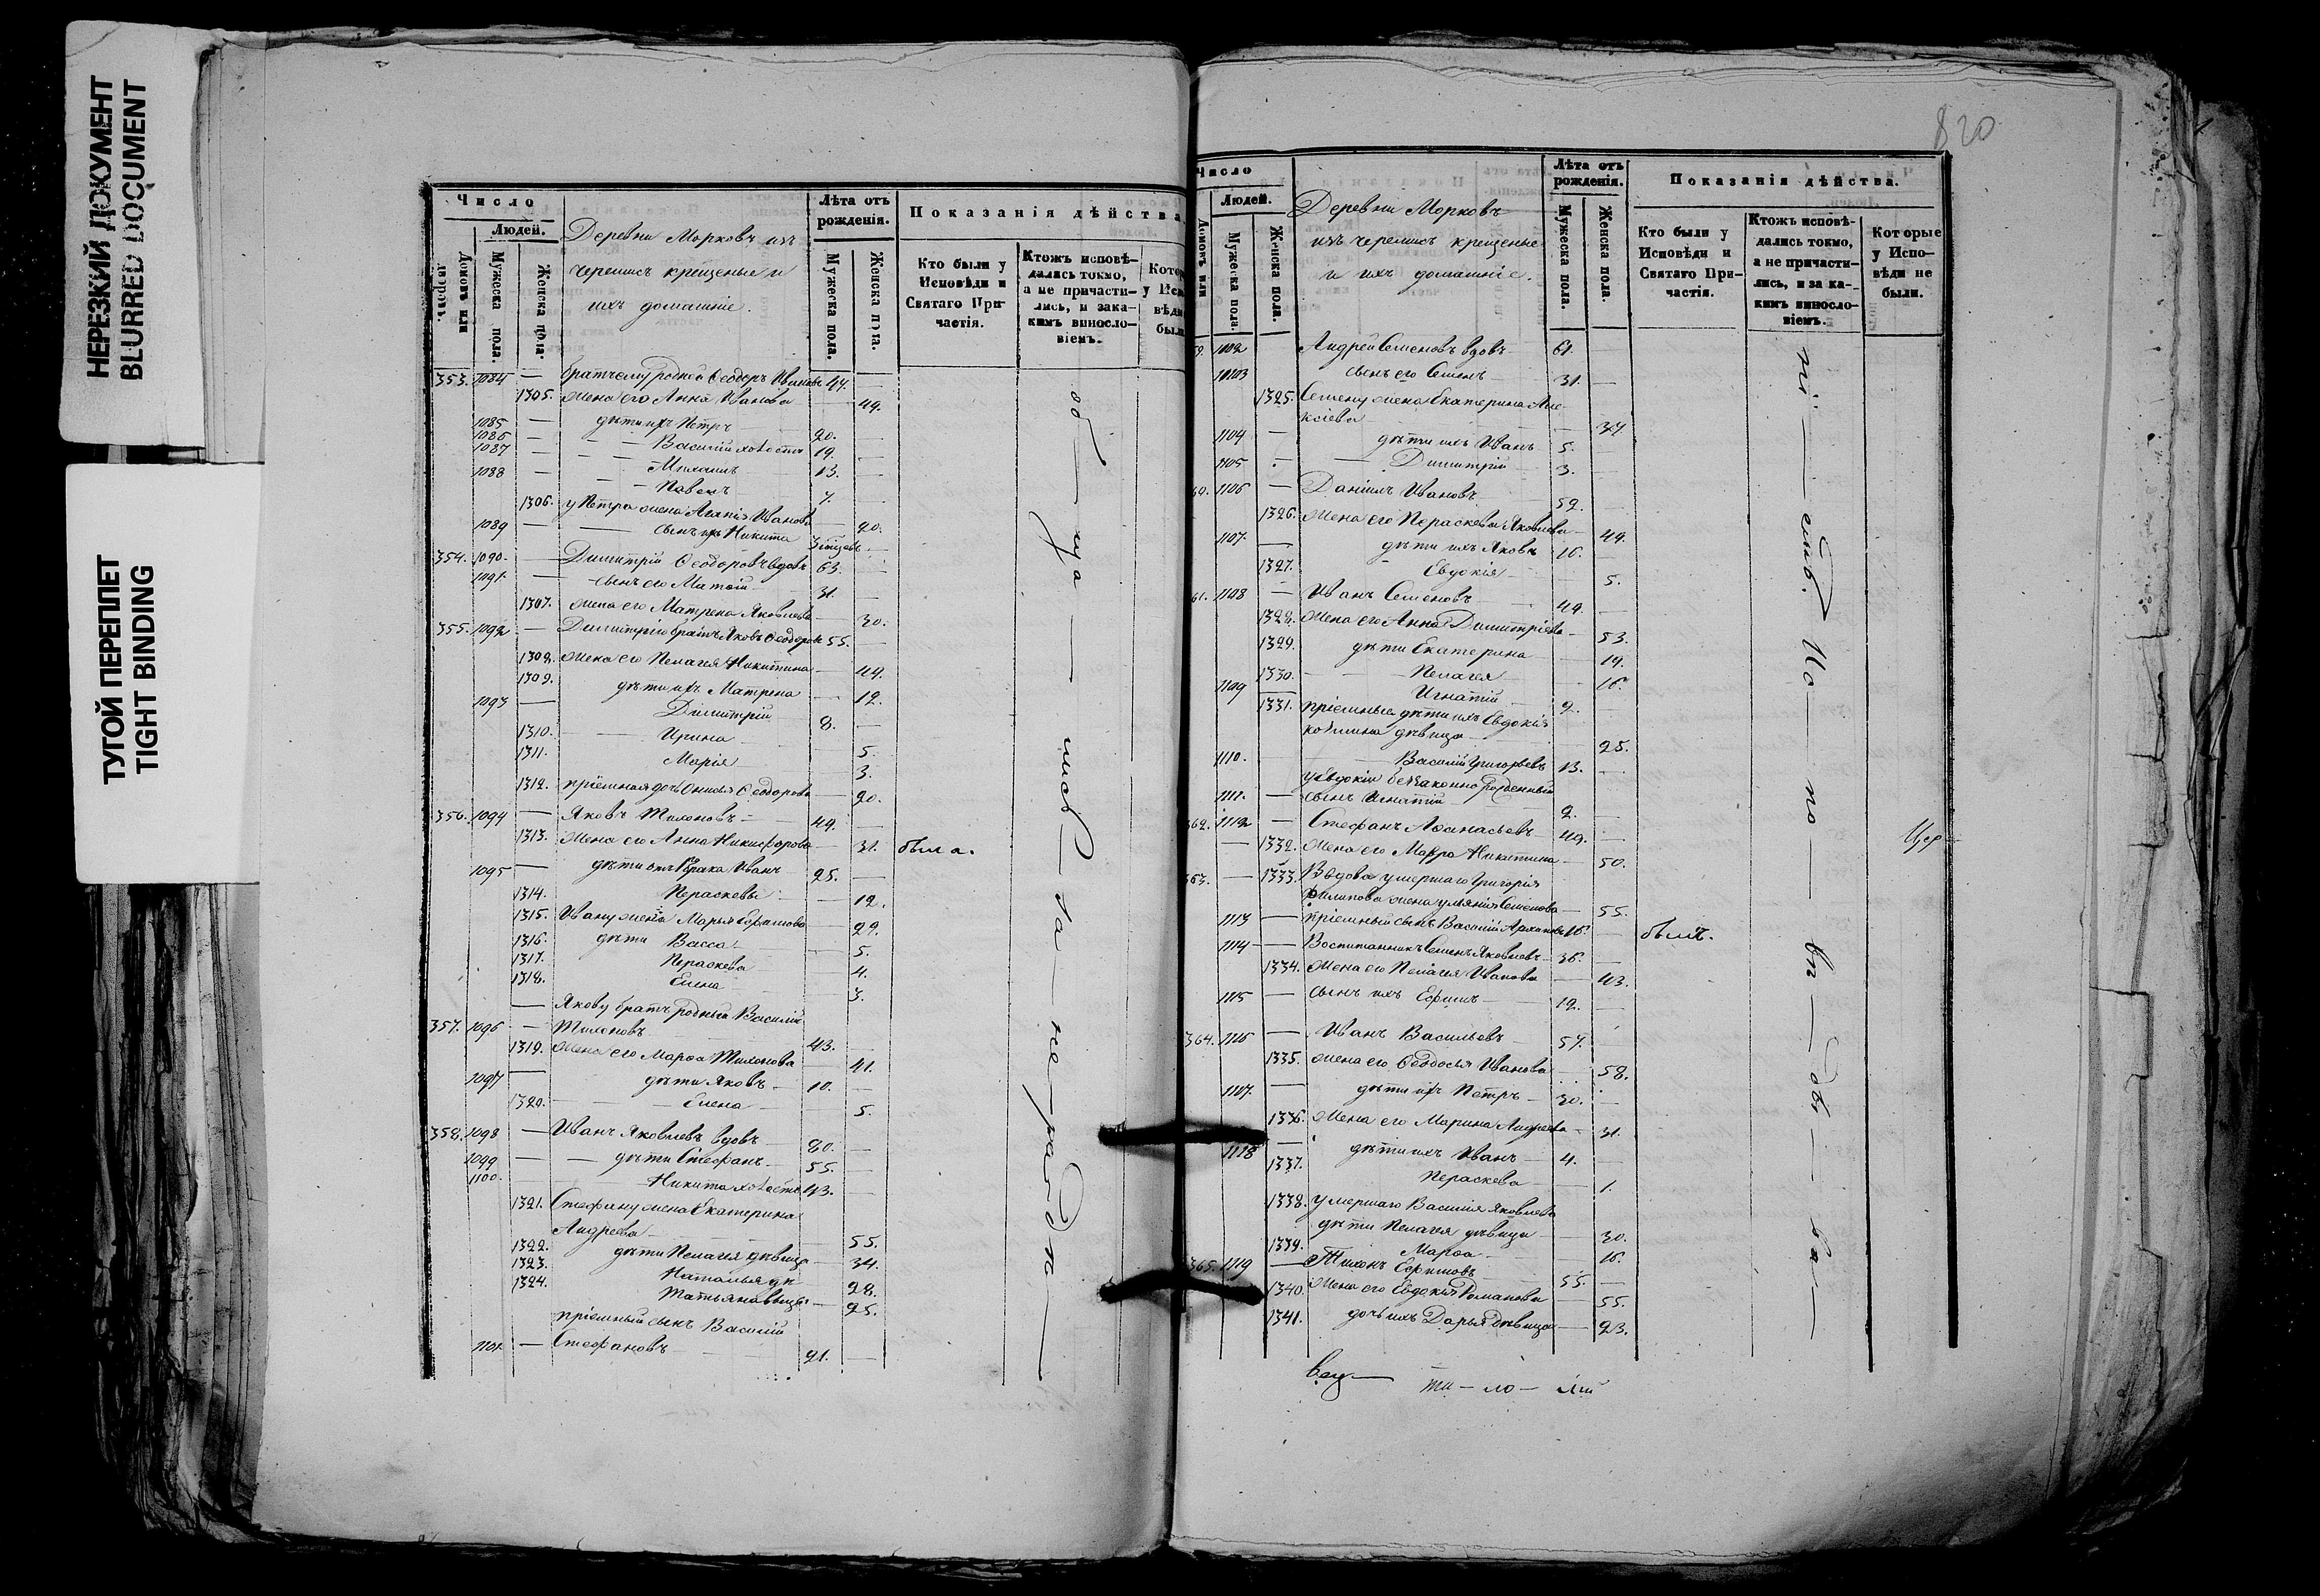 НЕРЕЗКИЙ ДОКУМЕНТ
BLURRED DOCUMENT
ТУГОЙ ПЕРЕПЛЕТ
TIGHT BINDING
Число
Людей.
Домовъ или дворовъ.
Мужеска пола.
Женска пола.
Деревни Морковъ изъ
черемисъ крещеные и
ихъ домашніе.
Лѣта отъ рожденія.
Мужеска пола.
Женска пола.
Показанія дѣйства
Кто были у Исповѣди и Святаго Причастія.
Ктожъ исповѣдались токмо, а не причастились, и за какимъ винословіемъ.
353. 1084 — братъ ему родной Ѳеодоръ Ивановъ 44. —
1305. жена его Анна Иванова — 49.
1085 — дѣти ихъ Петръ 20. —
1086 — Василій холостъ 19. —
1087 — Михаилъ 13. —
1088 — Павелъ 7. —
1306. у Петра жена Агапія Иванова — 20.
1089 — сынъ ихъ Никита
354. 1090 — Димитрій Ѳеодоровъ вдовъ 63. —
1091 — сынъ его Матѳій 31. —
1307. жена его Матрена Яковлева — 30.
355. 1092 — Димитрію братъ Яковъ Ѳеодоровъ 55. —
1308. жена его Пелагея Никитина — 49.
1309. дѣти ихъ Матрена — 12.
1093 — Димитрій 8. —
1310. Ирина — 5.
1311. Марія — 3.
1312. пріемная дочь Онисья Ѳеодорова — 20.
356. 1094 — Яковъ Тихоновъ 49. —
1313. жена его Анна Никифорова — 31. была.
1095 — дѣти отъ 1 брака Иванъ 25. —
1314. Пераскева — 12.
1315. Ивану жена Марья Ефимова — 29.
1316. дѣти Васса — 5.
1317. Пераскева — 4.
1318. Елена — 3.
— Якову братъ родный Василій
357. 1096 — Тихоновъ 43. —
1319. жена его Марѳа Тихонова — 41.
1097 — дѣти Яковъ 10. —
1320. Елена — 5.
358. 1098 — Иванъ Яковлевъ вдовъ 80. —
1099 — дѣти Стефанъ 55. —
1100 — Никита холостъ 43. —
1321. Стефану жена Екатерина
Андреева — 55.
1322. дѣти Пелагея дѣвица — 34.
1323. Наталья дѣ 28.
1324. Татьяна вицы — 25.
пріемный сынъ Василій
1101 — Стефановъ 21. —
820
Число
Людей.
Домовъ или
Мужеска пола.
Женска пола.
Деревни Морковъ
изъ черемисъ крещеные
и ихъ домашніе.
Лѣта отъ рожденія.
Мужеска пола.
Женска пола.
Показанія дѣйства.
Кто были у Исповѣди и Святаго Причастія.
Ктожъ исповѣдались токмо, а не причастились, и за какимъ винословіемъ.
Которые у Исповѣди не были.
1102 Андрей Семеновъ вдовъ 61. —
1103 сынъ его Семенъ 31. —
1325. Семену жена Екатерина Алексіева — 34
1104 — дѣти ихъ Иванъ 5. —
1105 — Димитрій 3. —
1106 — Даніилъ Ивановъ 52. —
1326. жена его Пераскева Яковлева — 49.
1107 — дѣти ихъ Яковъ 16. —
1327. Евдокія — 5.
61. 1108 — Иванъ Семеновъ 49. —
1328. жена его Анна Димитріева — 53.
1329. дѣти Екатерина — 19.
1330. Пелагея — 16.
1109 — Игнатій 9. —
1331. пріемные дѣти ихъ Евдокія
дѣвица — 25.
1110. — Василій Григорьевъ 13. —
у Евдокіи беззаконнорожденный
1111. — сынъ Игнатій 2. —
362. 1112 — Стефанъ Аѳанасьевъ 49. —
— 1332. жена его Мавра Никитина — 50.
363. — 1333. Вдова умершаго Григорія
Филипова жена Ульянія Семенова — 55.
1113 — пріемный сынъ Василій Архиповъ 16. — былъ.
1114 — Воспитанникъ Семенъ Яковлевъ 36. —
1334. жена его Пелагея Иванова — 43.
1115 — сынъ ихъ Ефимъ 12. —
364. 1116 — Иванъ Васильевъ 57. —
1335. жена его Ѳеодосья Иванова — 58.
1117. — дѣти ихъ Петръ 30. —
1336. жена его Марина Андреева — 31.
1118 — дѣти ихъ Иванъ 4. —
1337. Пераскева — 1.
1338. умершаго Василія Яковлева
дѣти Пелагея дѣвица — 30.
1339. Марѳа — 16.
365. 1119 — Тихонъ Ефимовъ 55. —
1340. жена его Евдокія Романова — 55.
1341. дочь ихъ Дарья дѣвица — 23.